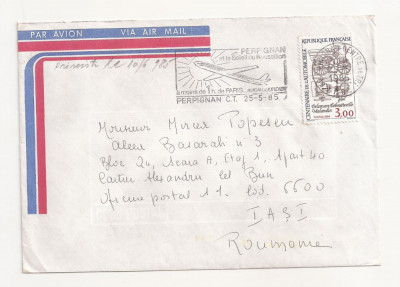 PAR AVION VIA AIR MAIL
PERPIGNAN
et le Soleil du Roussillon
à moins de 1 h. de PARIS
PERPIGNAN C.T. 25-5-85
REPUBLIQUE FRANÇAISE
CENTENAIRE DE L'AUTOMOBILE
3,00
Monsieur Mircea Popescu
Aleea Basarabi n° 3
Bloc 2a, Scara A, Etaj 1, Apart 40
Cartier Alexandru cel Bun
Oficiu postal 11 Cod. 6600
IAŞI
Roumanie